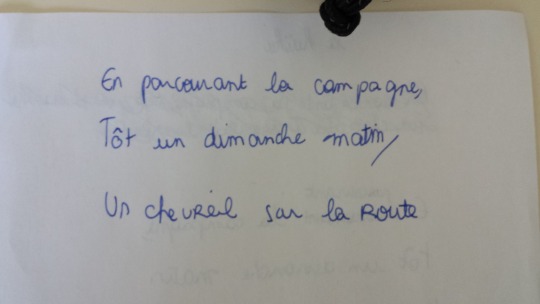 En parcourant la campagne,
Tôt un dimanche matin,
Un chevreil sur la Route